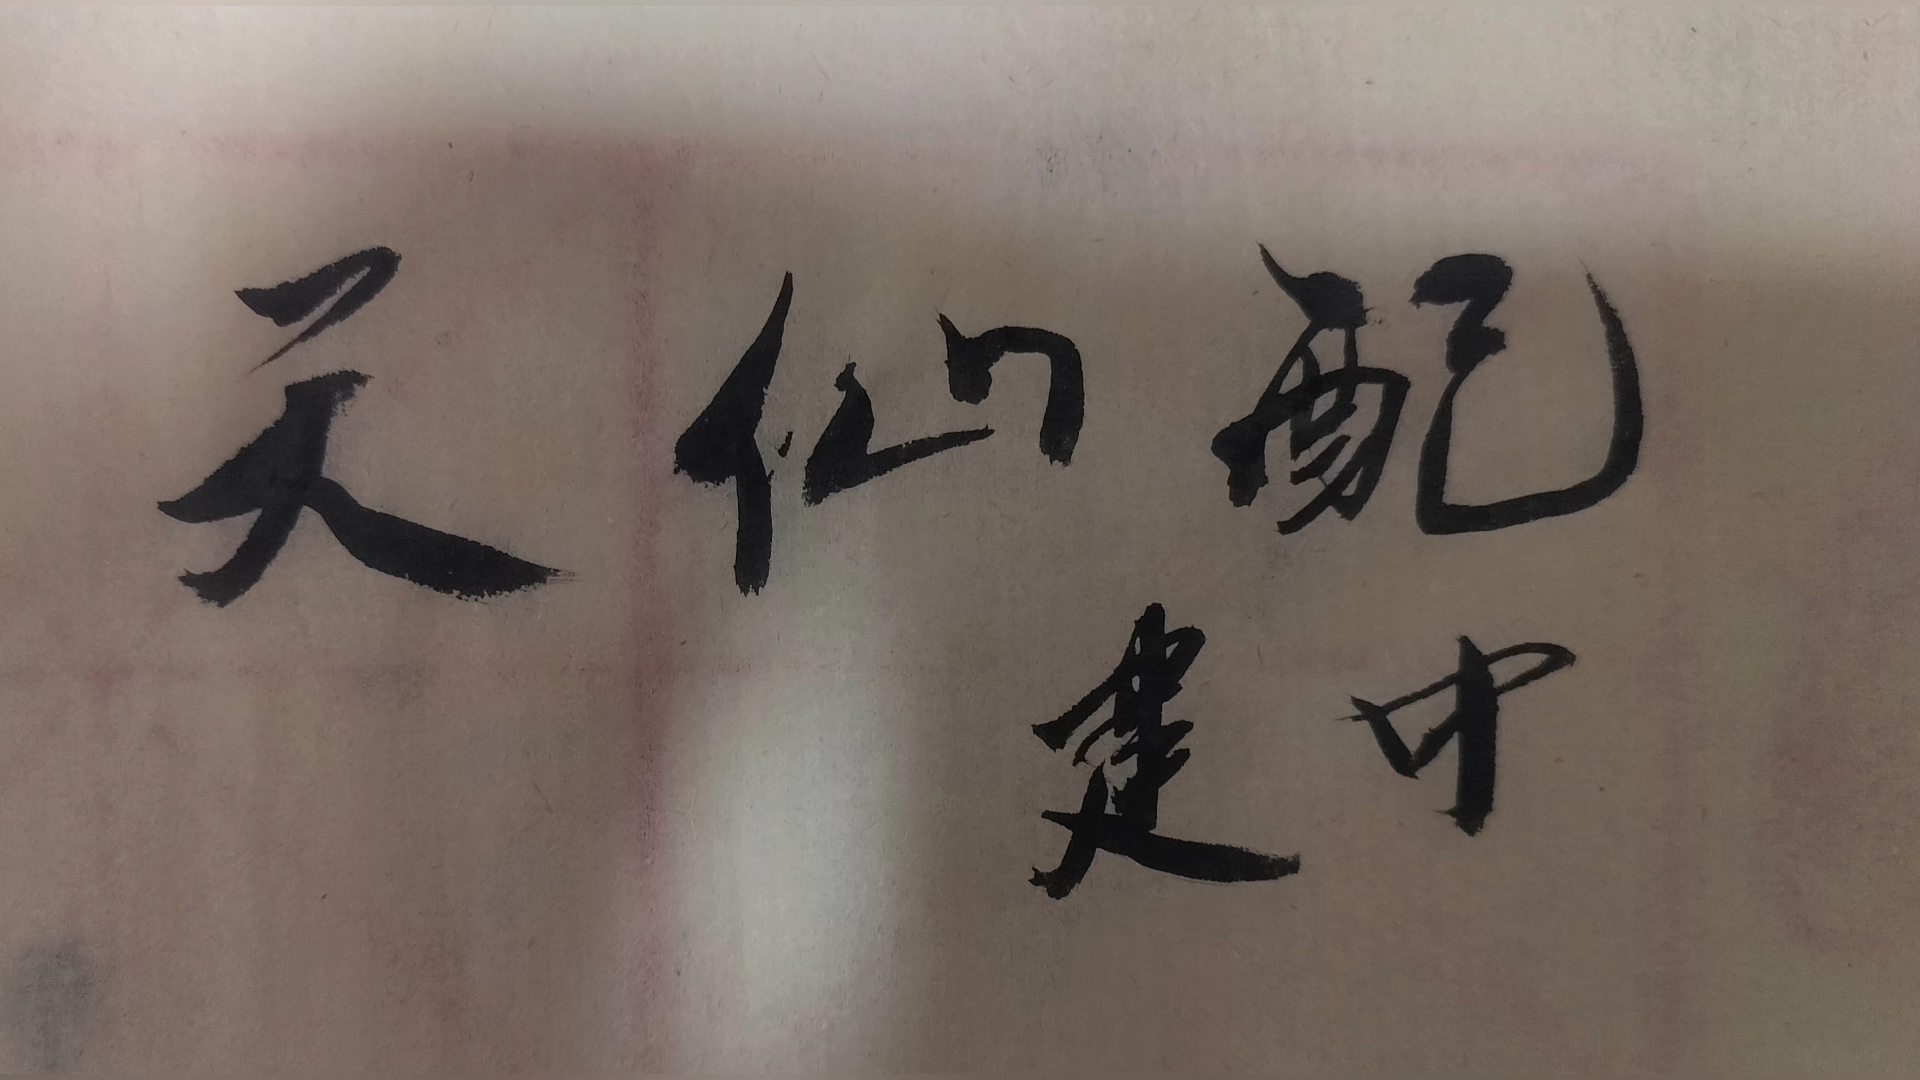 天仙配
建中